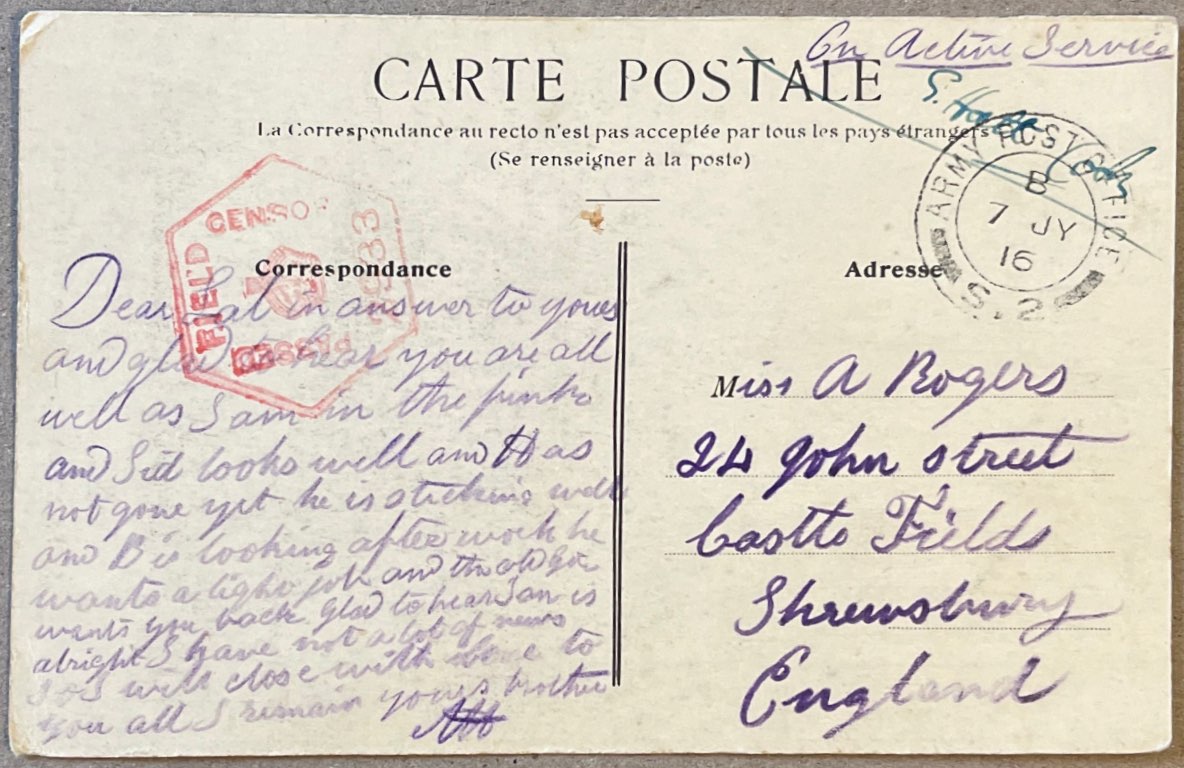 On Active Service
CARTE POSTALE
La Correspondance au recto n'est pas acceptée par tous les pays étrangers
(Se renseigner à la poste)
ARMY POST OFFICE
B
7 JY
16
S.2
FIELD CENSOR
PASSED
Correspondance
Dear Sal in answer to yours
and glad to hear you are all
well as I am in the pink
and Sid looks well and H as
not gone yet he is sticking well
and B is looking after work he
wants a light job and the old
wants you back glad to hear is
alright I have not a lot of news
so I will close with love to
you all I remain yours brother
Adresse
Miss A Rogers
24 John street
Castle Fields
Shrewsbury
England